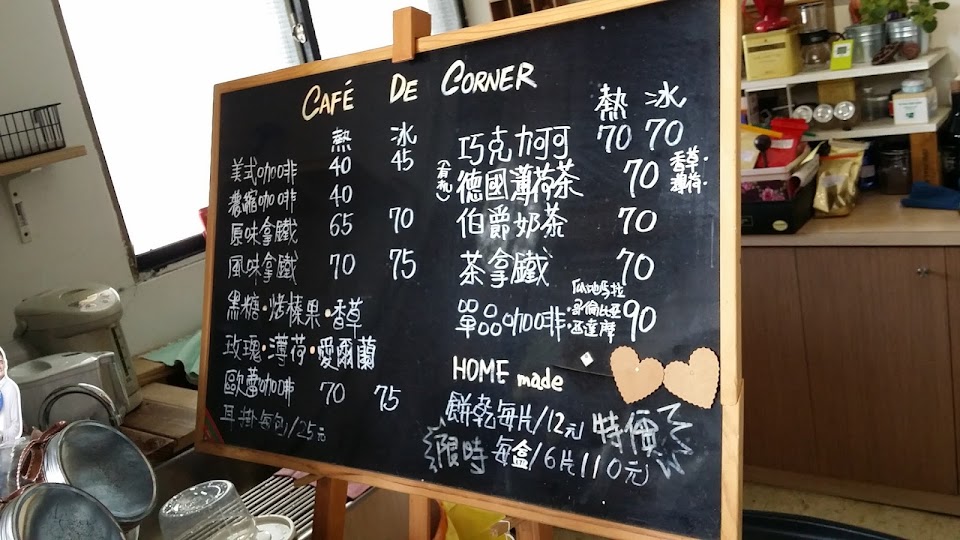 CAFÉ DE CORNER
熱 冰
美式咖啡 40 45
濃縮咖啡 40
原味拿鐵 65 70
風味拿鐵 70 75
黑糖·烤榛果·香草
玫瑰·薄荷·愛爾蘭
歐蕾咖啡 70 75
耳掛每包/25元
熱 冰
巧克力可可 70 70
(有機)德國薄荷茶 70 香草·薄荷·
伯爵奶茶 70
茶拿鐵 70
單品咖啡 90
·哥倫比亞
HOME made
餅乾每片/12元 特價
限時 每盒/6片110元